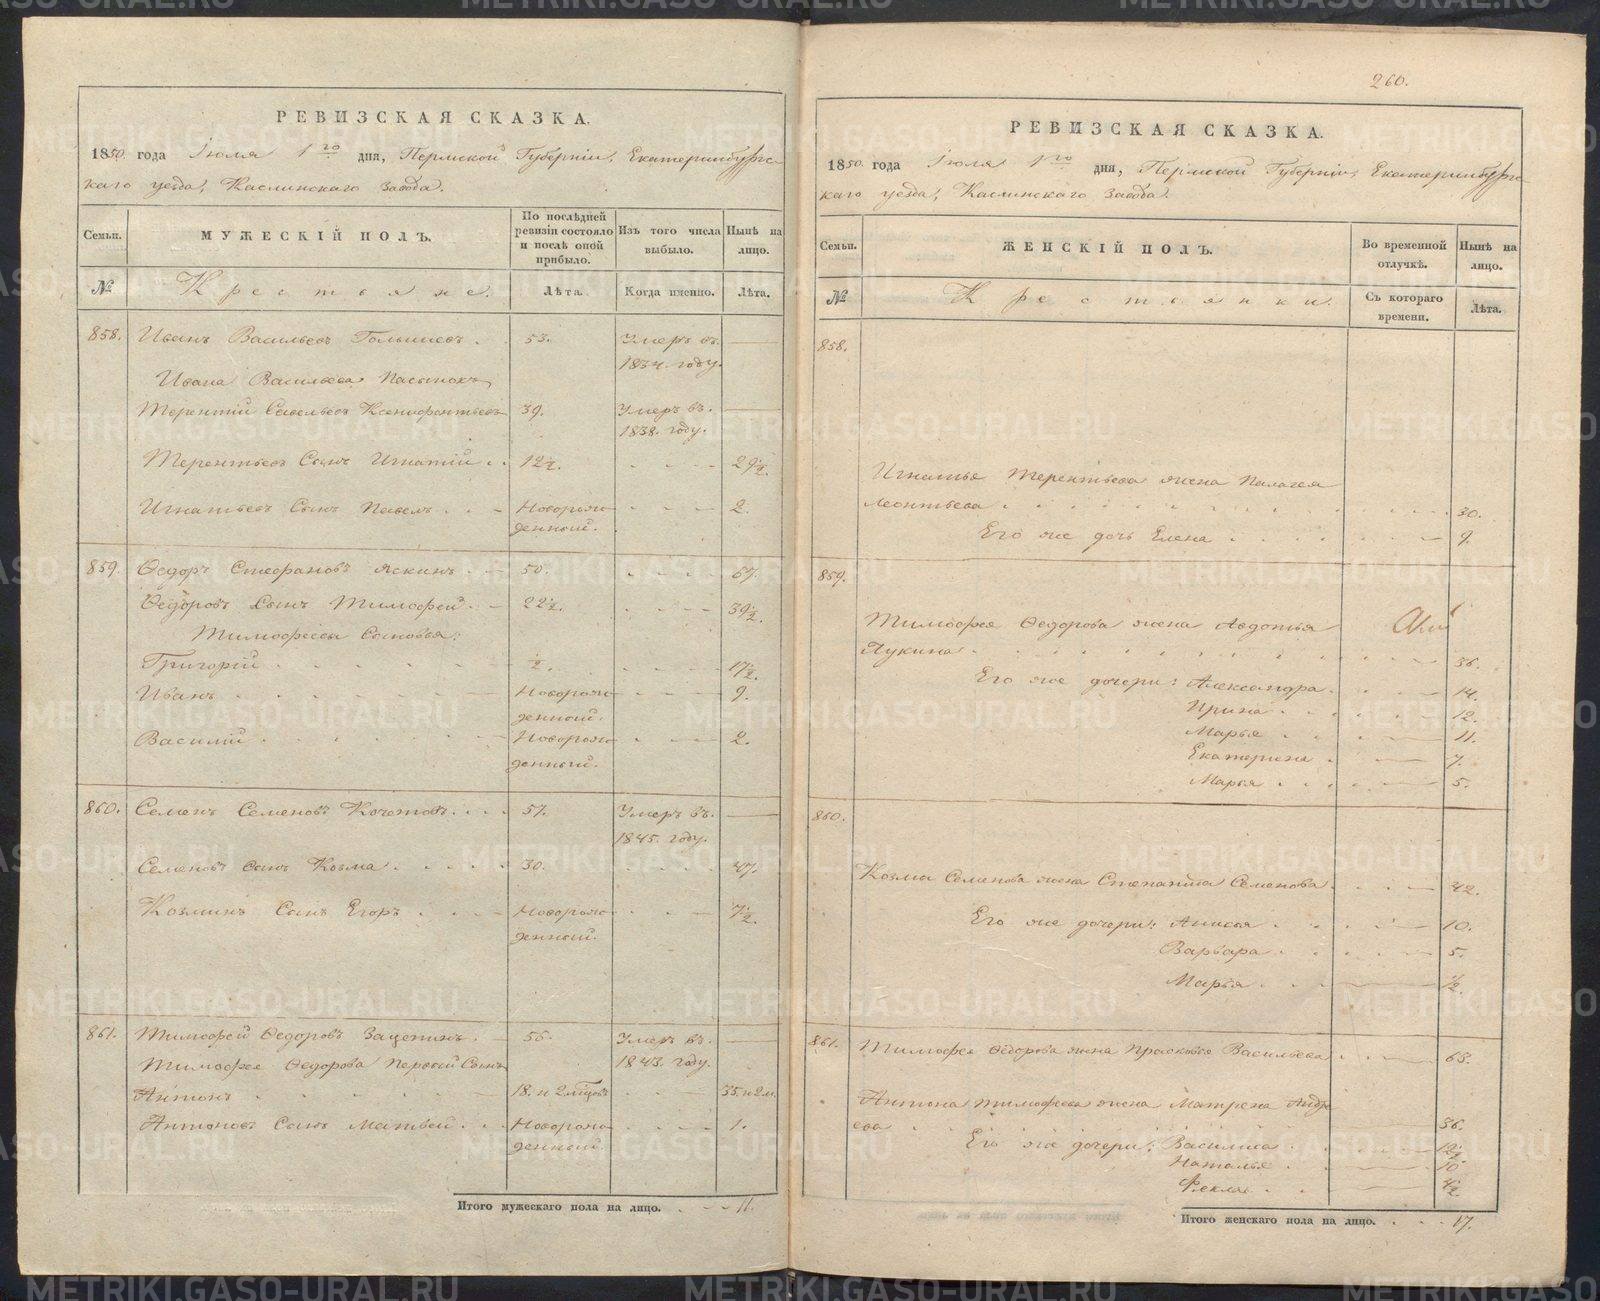 РЕВИЗСКАЯ СКАЗКА.
1850. года Іюля 1го дня, Пермской Губерніи, Екатеринбургс-
каго уезда, Каслинскаго завода.
Семьи. МУЖЕСКІЙ ПОЛЪ. По послѣдней ревизіи состояло и послѣ оной прибыло. Изъ того числа выбыло. Нынѣ на лицо.
№ Крестьяне. Лѣта. Когда именно. Лѣта.
858. Иванъ Васильевъ 53. Умеръ въ
1834. году.
Ивана Васильева Пасынокъ
Терентій Савельевъ Ксенофонтьевъ 39. Умеръ въ.
1838. году.
Терентьевъ Сынъ Игнатій 12½. 29½.
Игнатьевъ Сынъ Павелъ Новорож- 2.
денный.
859. Ѳедоръ Стефановъ Яскинъ 50. 67.
Ѳедоровъ Сынъ Тимофей 22½. 39½.
Тимофеевы Сыновья:
Григорій ½. 17½.
Иванъ Новорож- 9.
денный.
Василій Новорож- 2.
денный.
860. Семенъ Семеновъ Кочетовъ 57. Умеръ въ.
1845. году.
Семеновъ Сынъ Козма 30. 47.
Козминъ Сынъ Егоръ Новорож- 7½.
денный.
861. Тимофей Ѳедоровъ Зацепинъ 56. Умеръ въ.
1843. году.
Тимофея Ѳедорова Первый Сынъ
Антонъ 18. и 2 мцовъ 35. и 2 м.
Антоновъ Сынъ Матвей Новорож- 1.
денный.
Итого мужескаго пола на лицо. 11.
260.
РЕВИЗСКАЯ СКАЗКА.
1850. года Іюля 1го дня, Пермской Губерніи, Екатеринбургс-
каго уезда, Каслинскаго завода.
Семьи. ЖЕНСКІЙ ПОЛЪ. Во временной отлучкѣ. Нынѣ на лицо.
№ Крестьянки. Съ котораго времени. Лѣта.
858.
Игнатья Терентьева жена Палагея
Леонтьева 30.
Его же дочь Елена 9.
859.
Тимофея Ѳедорова жена Авдотья
Лукина 36.
Его же дочери: Александра 14.
Ирина 12.
Марья 11.
Екатерина 7.
Марья 5.
860.
Козмы Семенова жена Степанида Семенова 42.
Его же дочери: Анисья 10.
Варвара 5.
Марья ½.
861. Тимофея Ѳедорова жена Прасковья Васильева 63.
Антона Тимофеева жена Матрена Андре
ева 36.
Его же дочери: Василиса 12½
Наталья 10
Фекла 4½.
Итого женскаго пола на лицо. 17.
METRIKI.GASO-URAL.RU